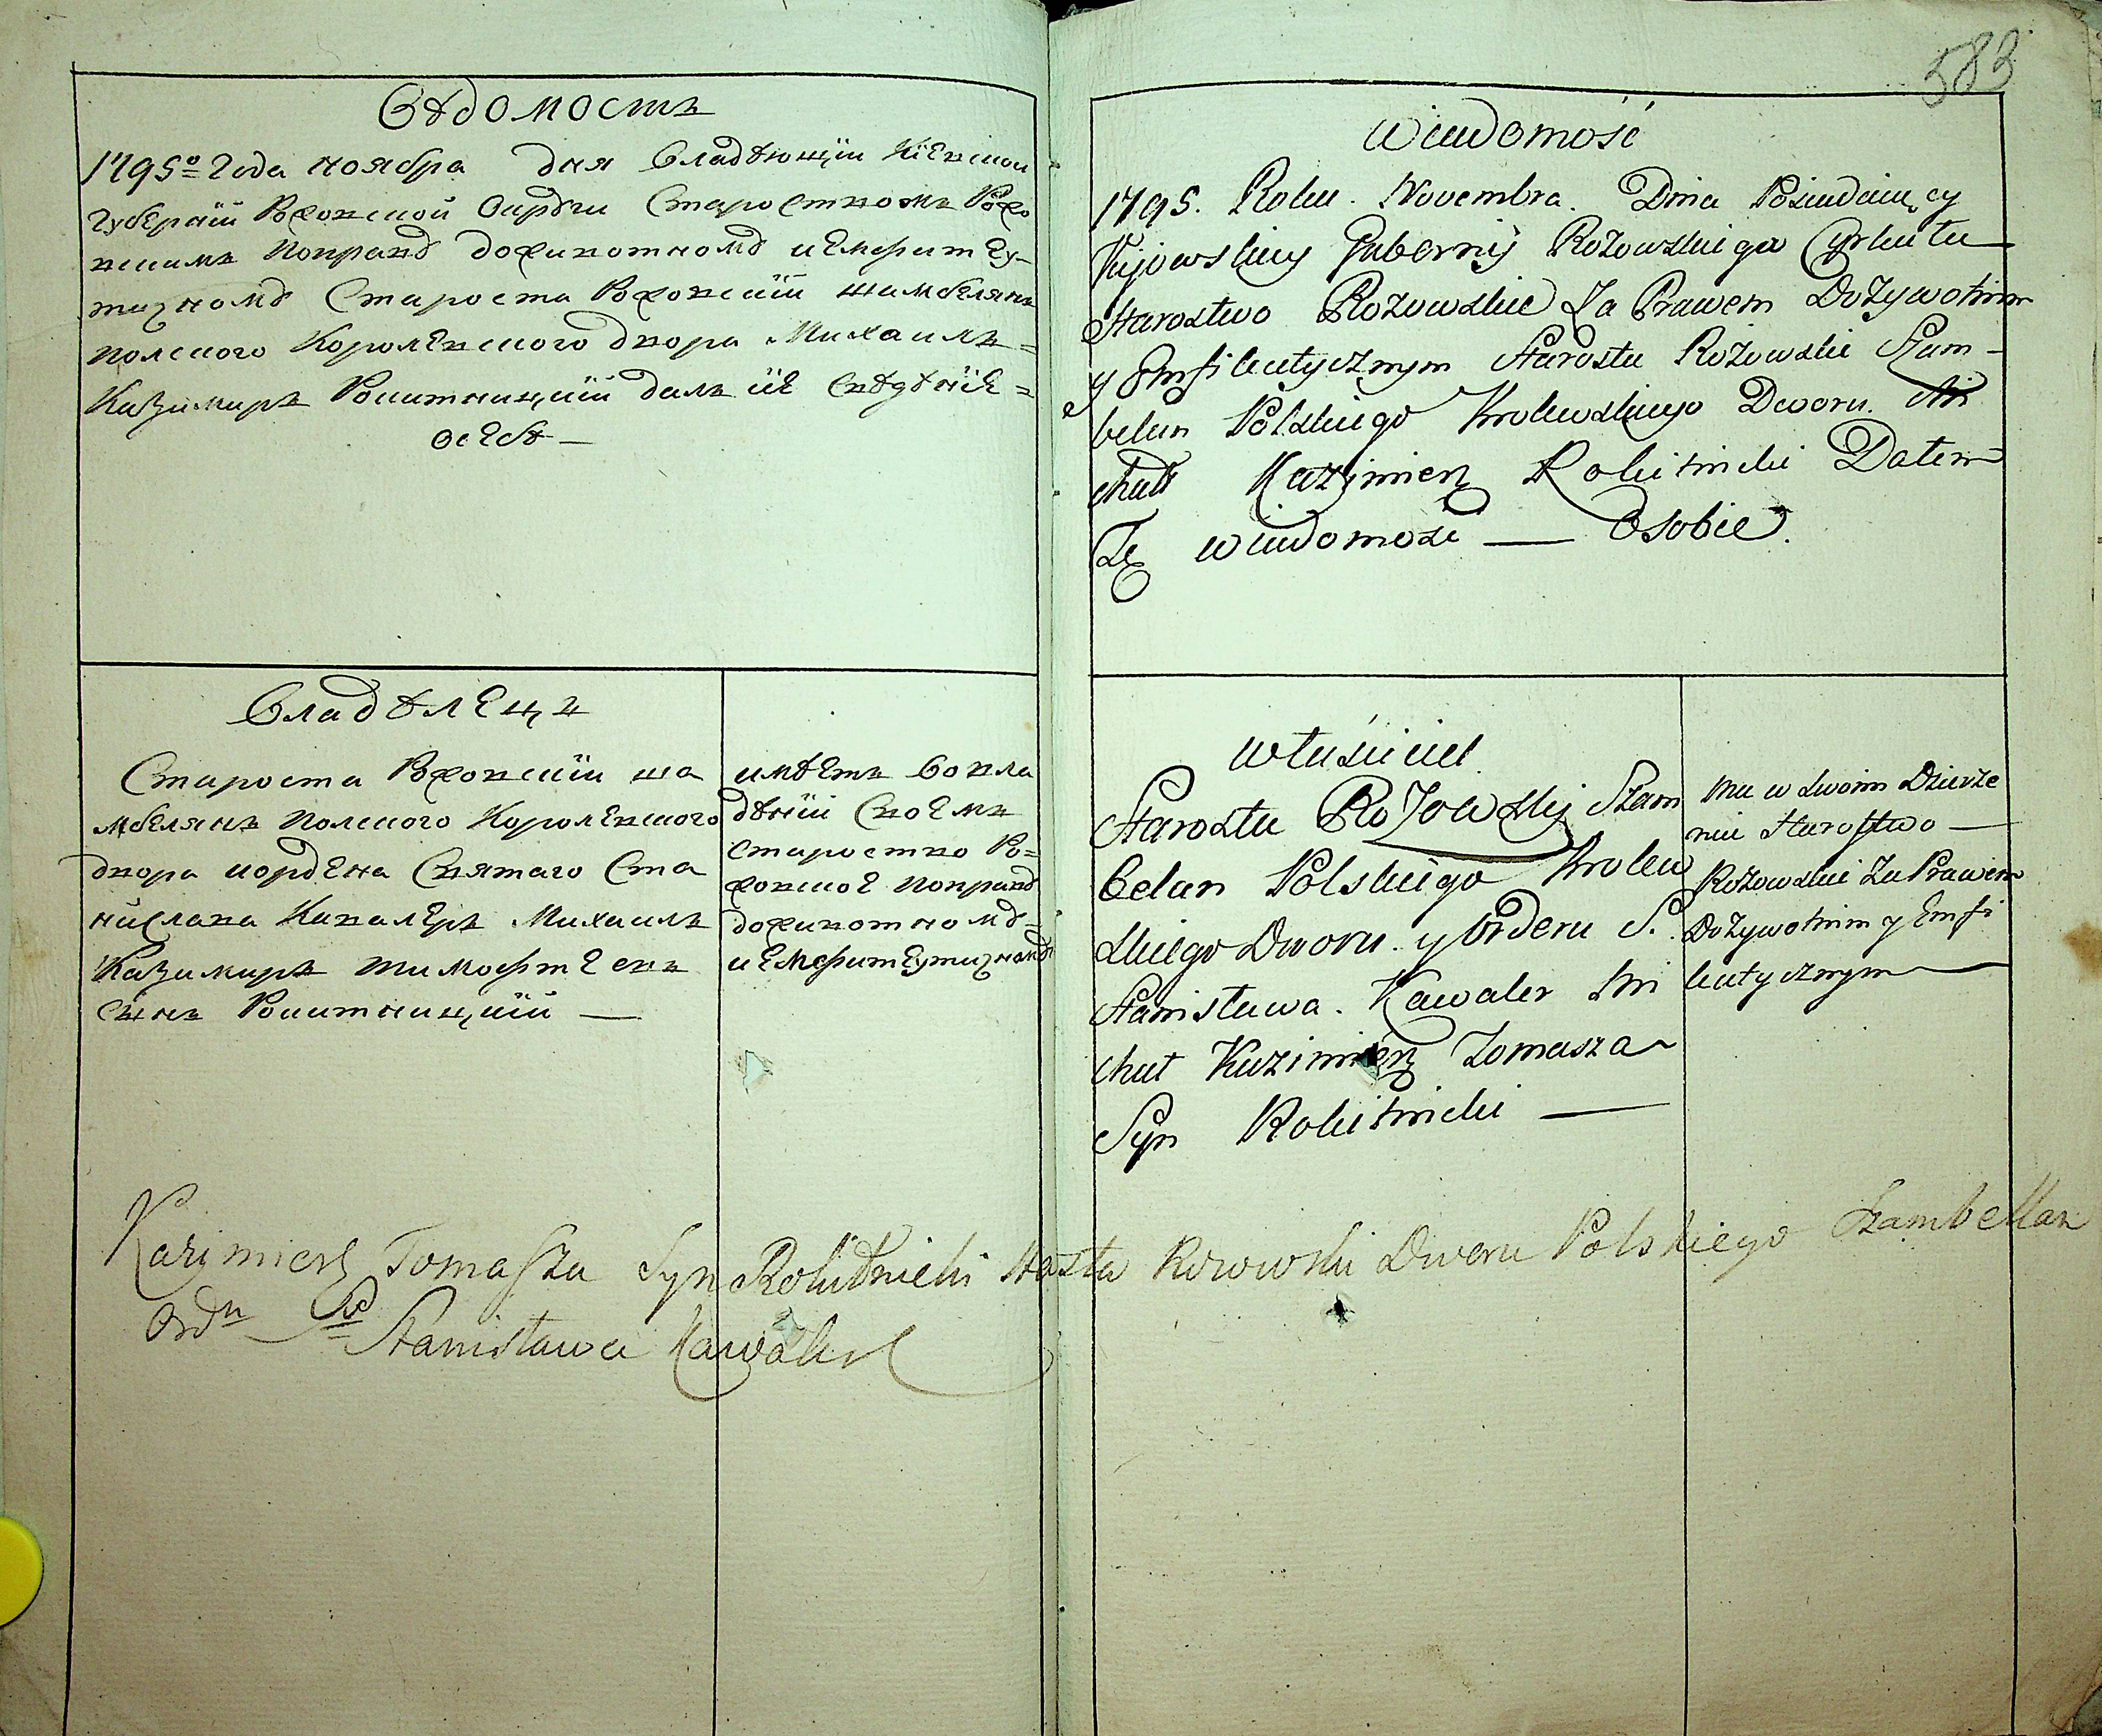 583
Ведомость
1795º года ноября дня владеющiи Кiевской
губернiи Рожовской округи староством Рожо
вским по праву доживотному и емфитеу-
тичному староста Рожовскiй шамбелянъ
полского королевского двора Михаилъ =
Казимиръ Рокитницкiй далъ сiе сведѣнiе =
о себѣ —
Владѣлецъ
Староста Рожовскiи ша
мбелянъ полского королевского
двора и ордена святаго Ста
нислава кавалеръ Михаилъ
Казимиръ Тимофтеевъ
сынъ Рокитницкiй —
имѣетъ во вла
дѣнiи своемъ
староство Ро=
жовское по праву
доживотному =
и емфитеутичному
Wiadomość
1795. Roku. Novembra. Dnia Posiadaiący
Kijowskiey Gubernij Rożowskiego Cyrkułu
Starostwo Rożowskie Za Prawem Dożywotnim
y Emfiteutycznym Starosta Rożowski Szam-
belan Polskiego Krolewskiego Dworu. Mi
chał Kazimierz Rokitnicki Dałem
Tę wiadomość — O sobie.
Właściciel
Starosta Rożowskij Szam
belan Polskiego Krolew
skiego Dworu. y Orderu S.
Stanisława. Kawaler Mi
chał Kazimierz Tomasza
Syn Rokitnicki —
Ma w swoim Dzierże
niu Starostwo —
Rożowskie Za Prawem
Dożywotnim y Emfi
teutycznym —
Kazimierz Tomasza Syn Rokitnicki Stosta Rozowski Dworu Polskiego Szambellan
Ordu Sº Stanisława Kawaler